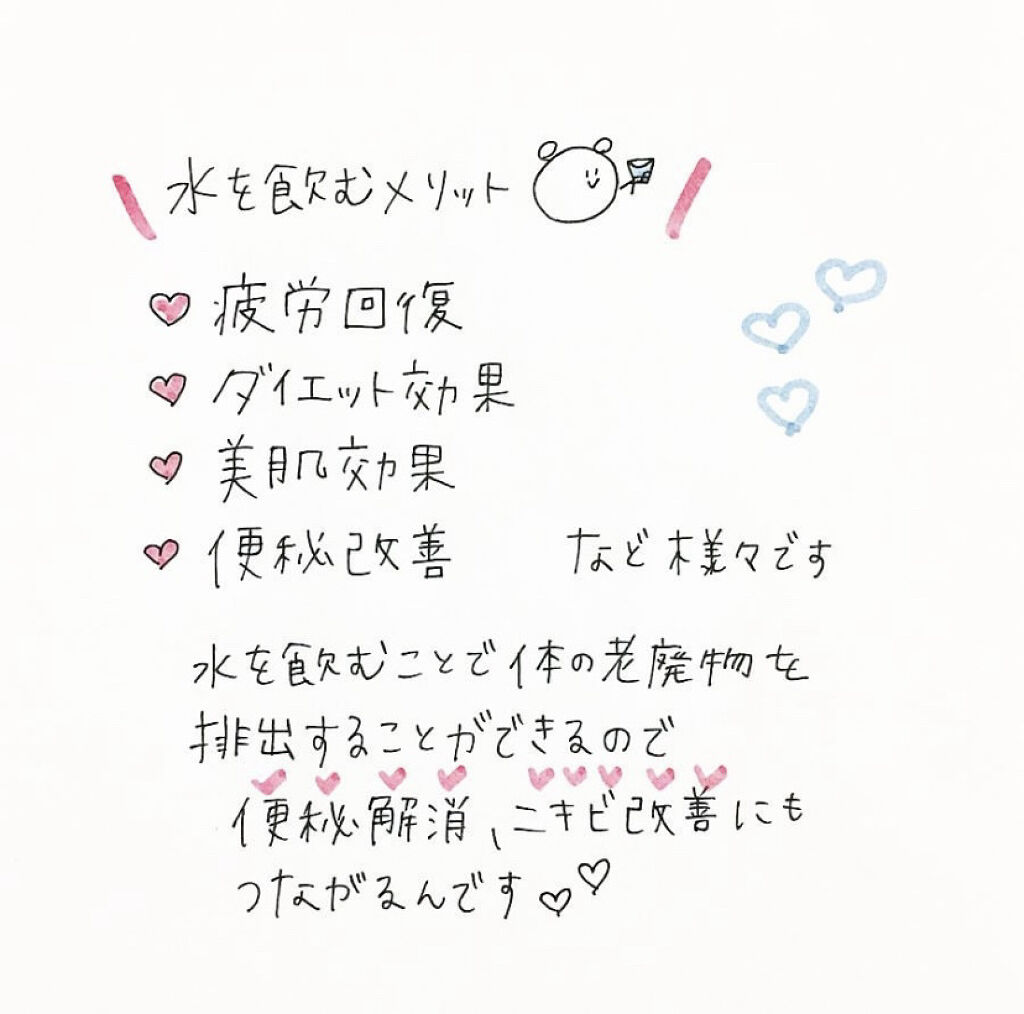 水を飲むメリット
疲労回復
ダイエット効果
美肌効果
便秘改善 など様々です
水を飲むことで体の老廃物を
排出することができるので
便秘解消、ニキビ改善にも
つながるんです